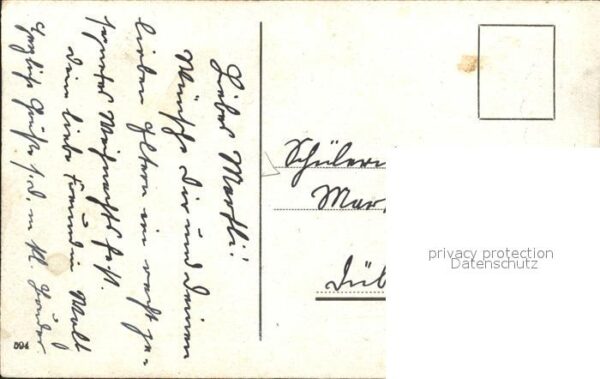 Lieber Martli!
Wünsche Dir und Deinen
lieben Eltern ein recht ge-
segnetes Weihnachtsfest.
Dein liebe Freundin
Herzliche Grüße
Schüleri
Mar
Düb
privacy protection
Datenschutz
594